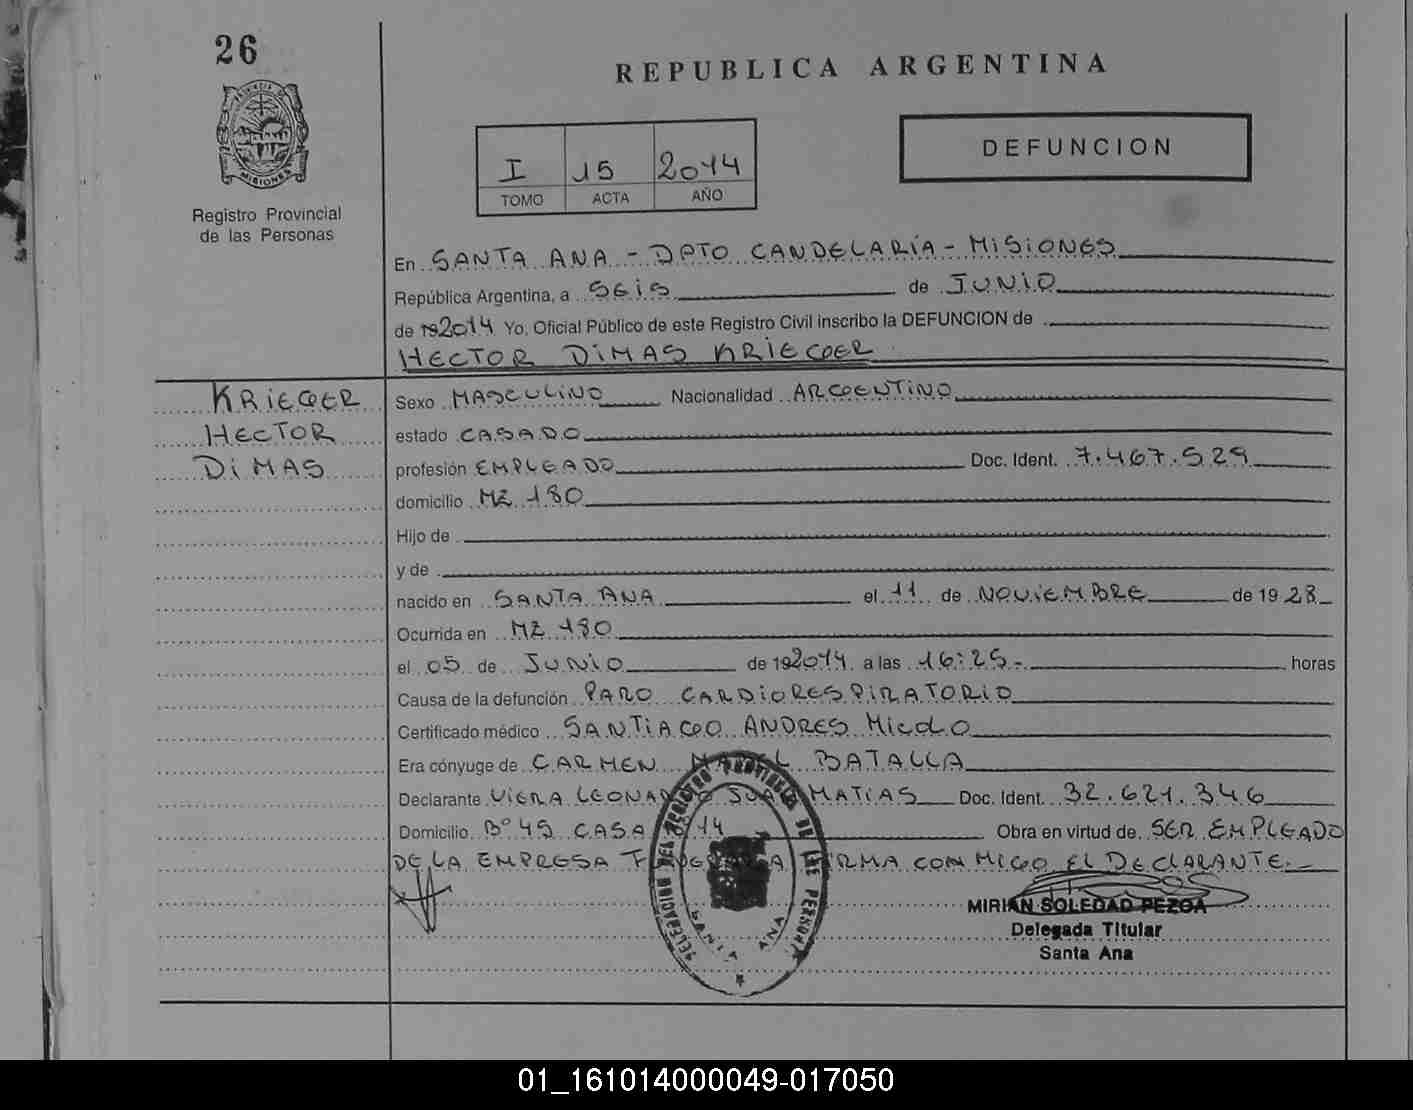 26
REPUBLICA ARGENTINA
PROVINCIA DE MISIONES
Registro Provincial
de las Personas
I 15 2014
TOMO ACTA AÑO
DEFUNCION
En SANTA ANA - DPTO CANDELARIA - MISIONES
República Argentina, a SEIS de JUNIO
de 192014 Yo, Oficial Público de este Registro Civil inscribo la DEFUNCION de
HECTOR DIMAS KRIEGER
KRIEGER
HECTOR
DIMAS
Sexo MASCULINO Nacionalidad ARGENTINO
estado CASADO
profesión EMPLEADO Doc. Ident. 7.467.529
domicilio MZ 180
Hijo de
y de
nacido en SANTA ANA el 11 de NOVIEMBRE de 19 28
Ocurrida en MZ 180
el 05 de JUNIO de 192014 a las 16:25 horas
Causa de la defunción PARO CARDIORESPIRATORIO
Certificado médico SANTIAGO ANDRES
Era cónyuge de CARMEN MABEL BATALLA
Declarante VIERA LEONARDO JUAN MATIAS Doc. Ident. 32.621.346
Domicilio Bº 45 CASA 14 Obra en virtud de SER EMPLEADO
DE LA EMPRESA FIRMA CONMIGO EL DECLARANTE.
DELEGACION DEL REGISTRO PROVINCIAL DE LAS PERSONAS
SANTA ANA
MIRIAN SOLEDAD PEZOA
Delegada Titular
Santa Ana
01_161014000049-017050